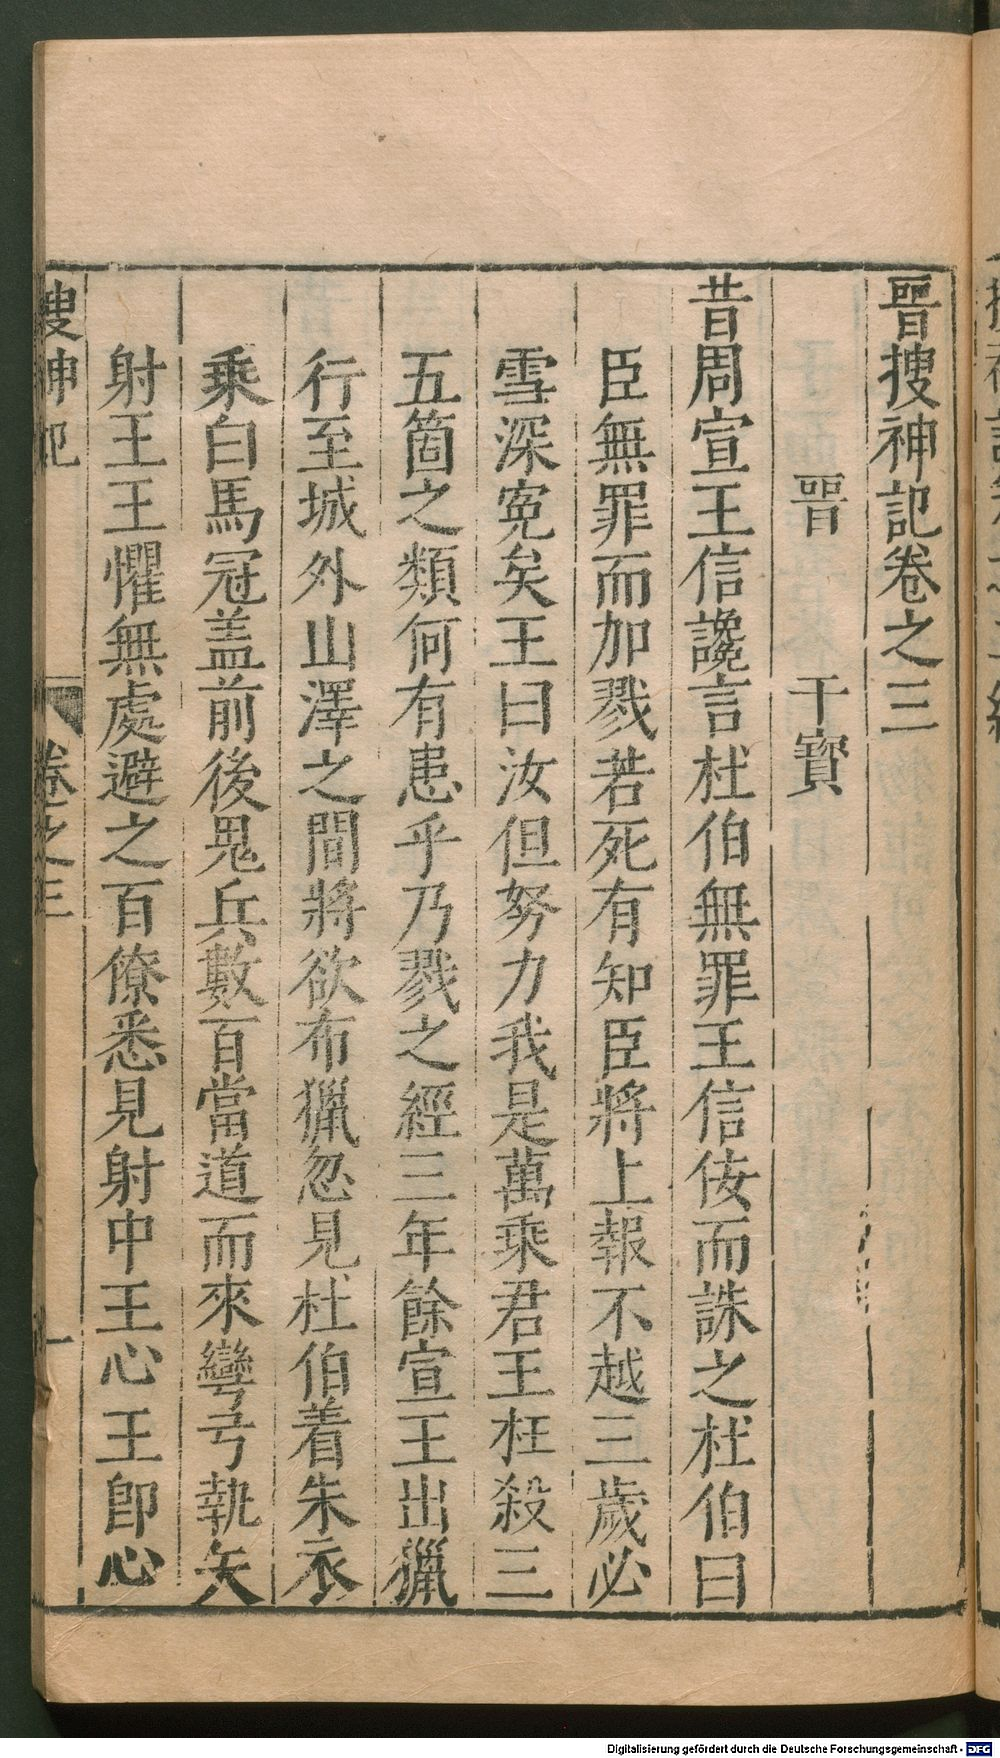 晉搜神記卷之三
晉 干寶
昔周宣王信讒言杜伯無罪王信佞而誅之杜伯曰
臣無罪而加戮若死有知臣將上報不越三歲必
雪深寃矣王曰汝但努力我是萬乘君王枉殺三
五箇之類何有患乎乃戮之經三年餘宣王出獵
行至城外山澤之間將欲布獵忽見杜伯着朱衣
乘白馬冠盖前後鬼兵數百當道而來彎弓執矢
射王王懼無處避之百僚悉見射中王心王卽心
搜神記 卷之三 一
Digitalisierung gefördert durch die Deutsche Forschungsgemeinschaft - DFG